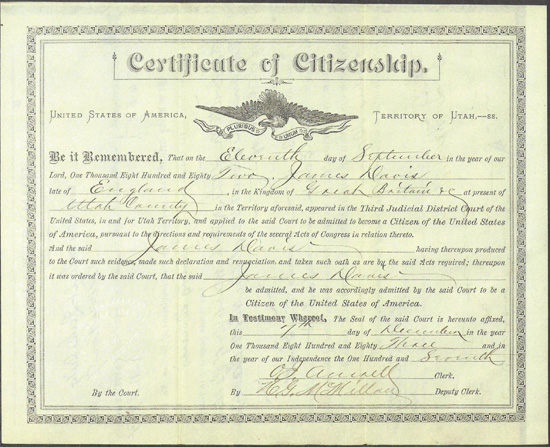 Certificate of Citizenship.
UNITED STATES OF AMERICA, TERRITORY OF UTAH,—ss.
E PLURIBUS UNUM
Be it Remembered, That on the Eleventh day of September in the year of our
Lord, One Thousand Eight Hundred and Eighty Two, James Davis
late of England, in the Kingdom of Great Britain &c at present of
Utah County in the Territory aforesaid, appeared in the Third Judicial District Court of the
United States, in and for Utah Territory, and applied to the said Court to be admitted to become a Citizen of the United States
of America, pursuant to the directions and requirements of the several Acts of Congress in relation thereto.
And the said James Davis having thereupon produced
to the Court such evidence, made such declaration and renunciation, and taken such oath as are by the said Acts required; thereupon
it was ordered by the said Court, that the said James Davis
be admitted, and he was accordingly admitted by the said Court to be a
Citizen of the United States of America.
In Testimony Whereof, The Seal of the said Court is hereunto affixed,
this 7th day of December in the year
One Thousand Eight Hundred and Eighty Three and in
the year of our Independence the One Hundred and Seventh
Clerk.
By the Court. By H.G. McMillan Deputy Clerk.